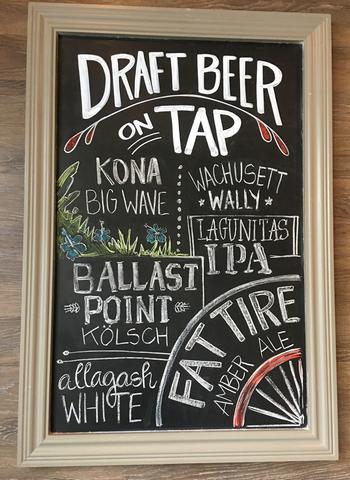 DRAFT BEER
ON TAP
KONA
BIG WAVE
WACHUSETT
WALLY
LAGUNITAS
IPA
BALLAST
POINT
KÖLSCH
FAT TIRE
AMBER ALE
allagash
WHITE